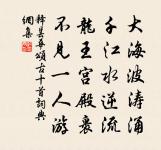 大海波濤涌
千江水逆流
龍王宮殿裏
不見一人游
釋頌古十首詞典
網集